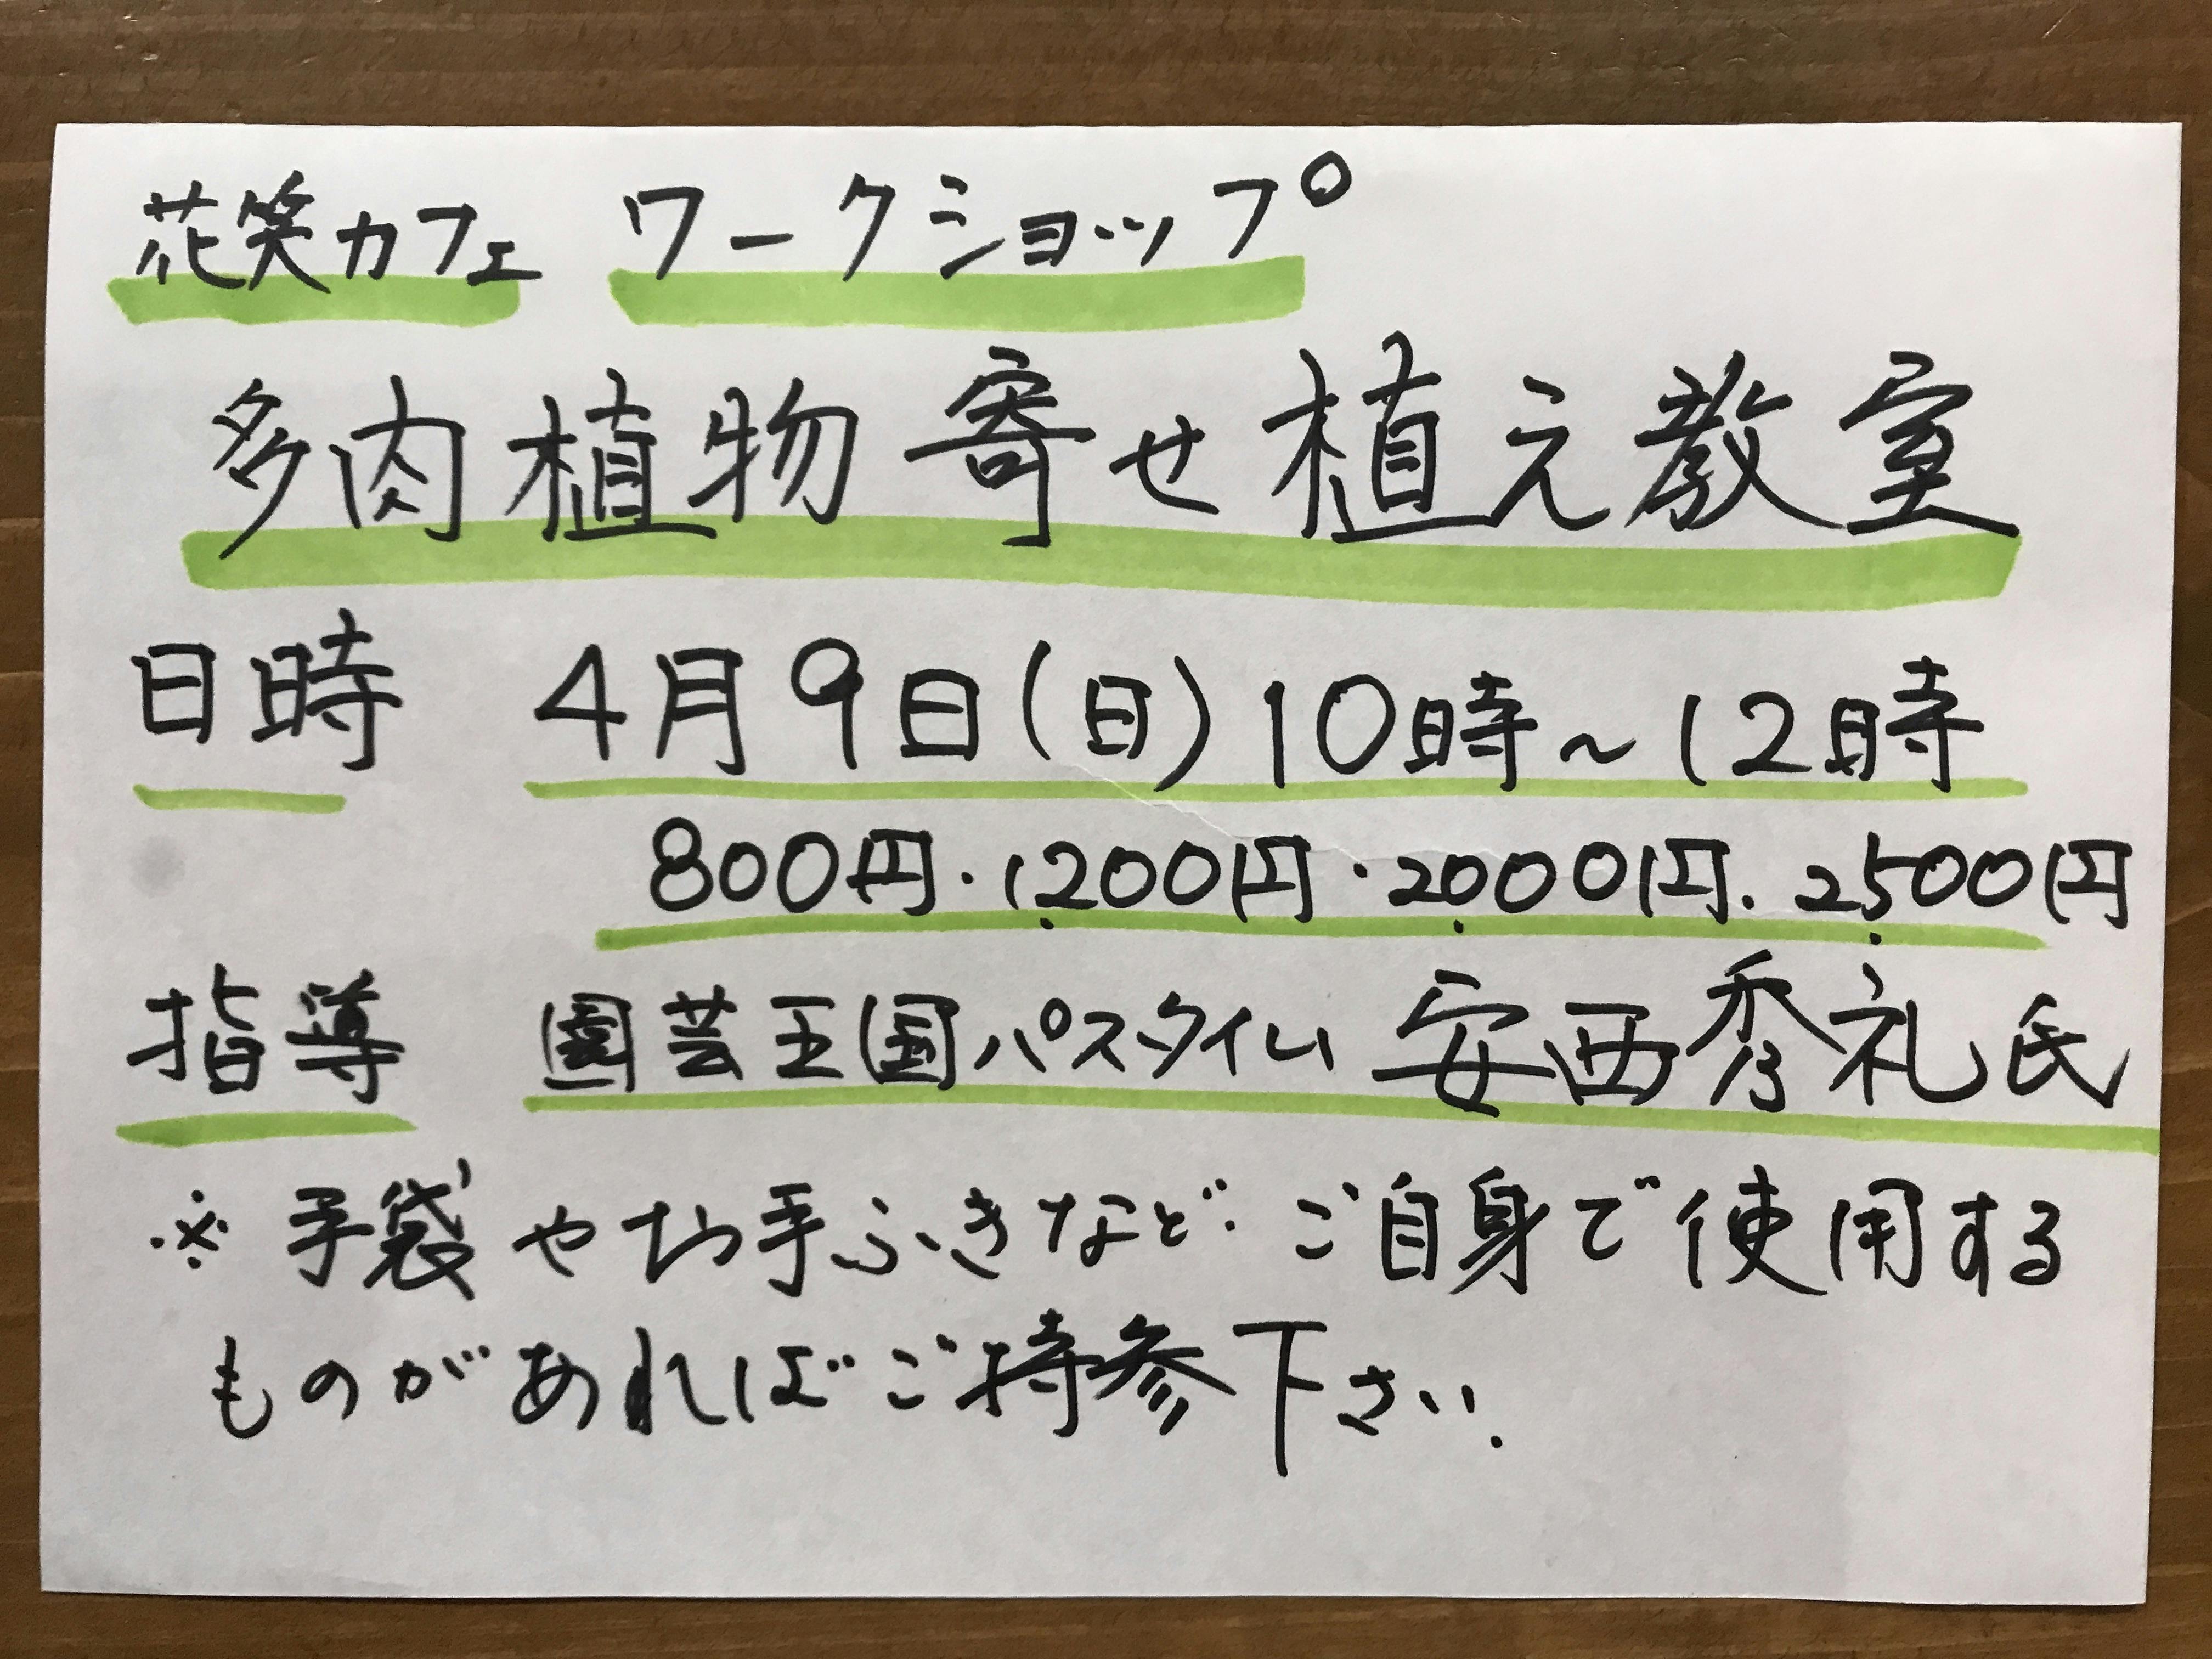 花笑カフェ ワークショップ
多肉植物寄せ植え教室
日時 4月9日(日)10時~12時
800円・1,200円・2,000円・2,500円
指導 園芸王国パスタイム 安西秀礼氏
※手袋やお手ふきなど、ご自身で使用する
ものがあればご持参下さい.